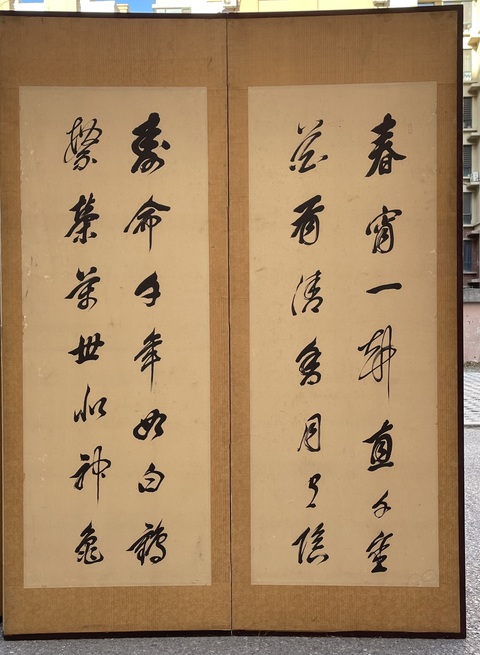 春宵一刻直千金
花有清香月有陰
壽命千年如白鶴
繁榮萬世似神龜